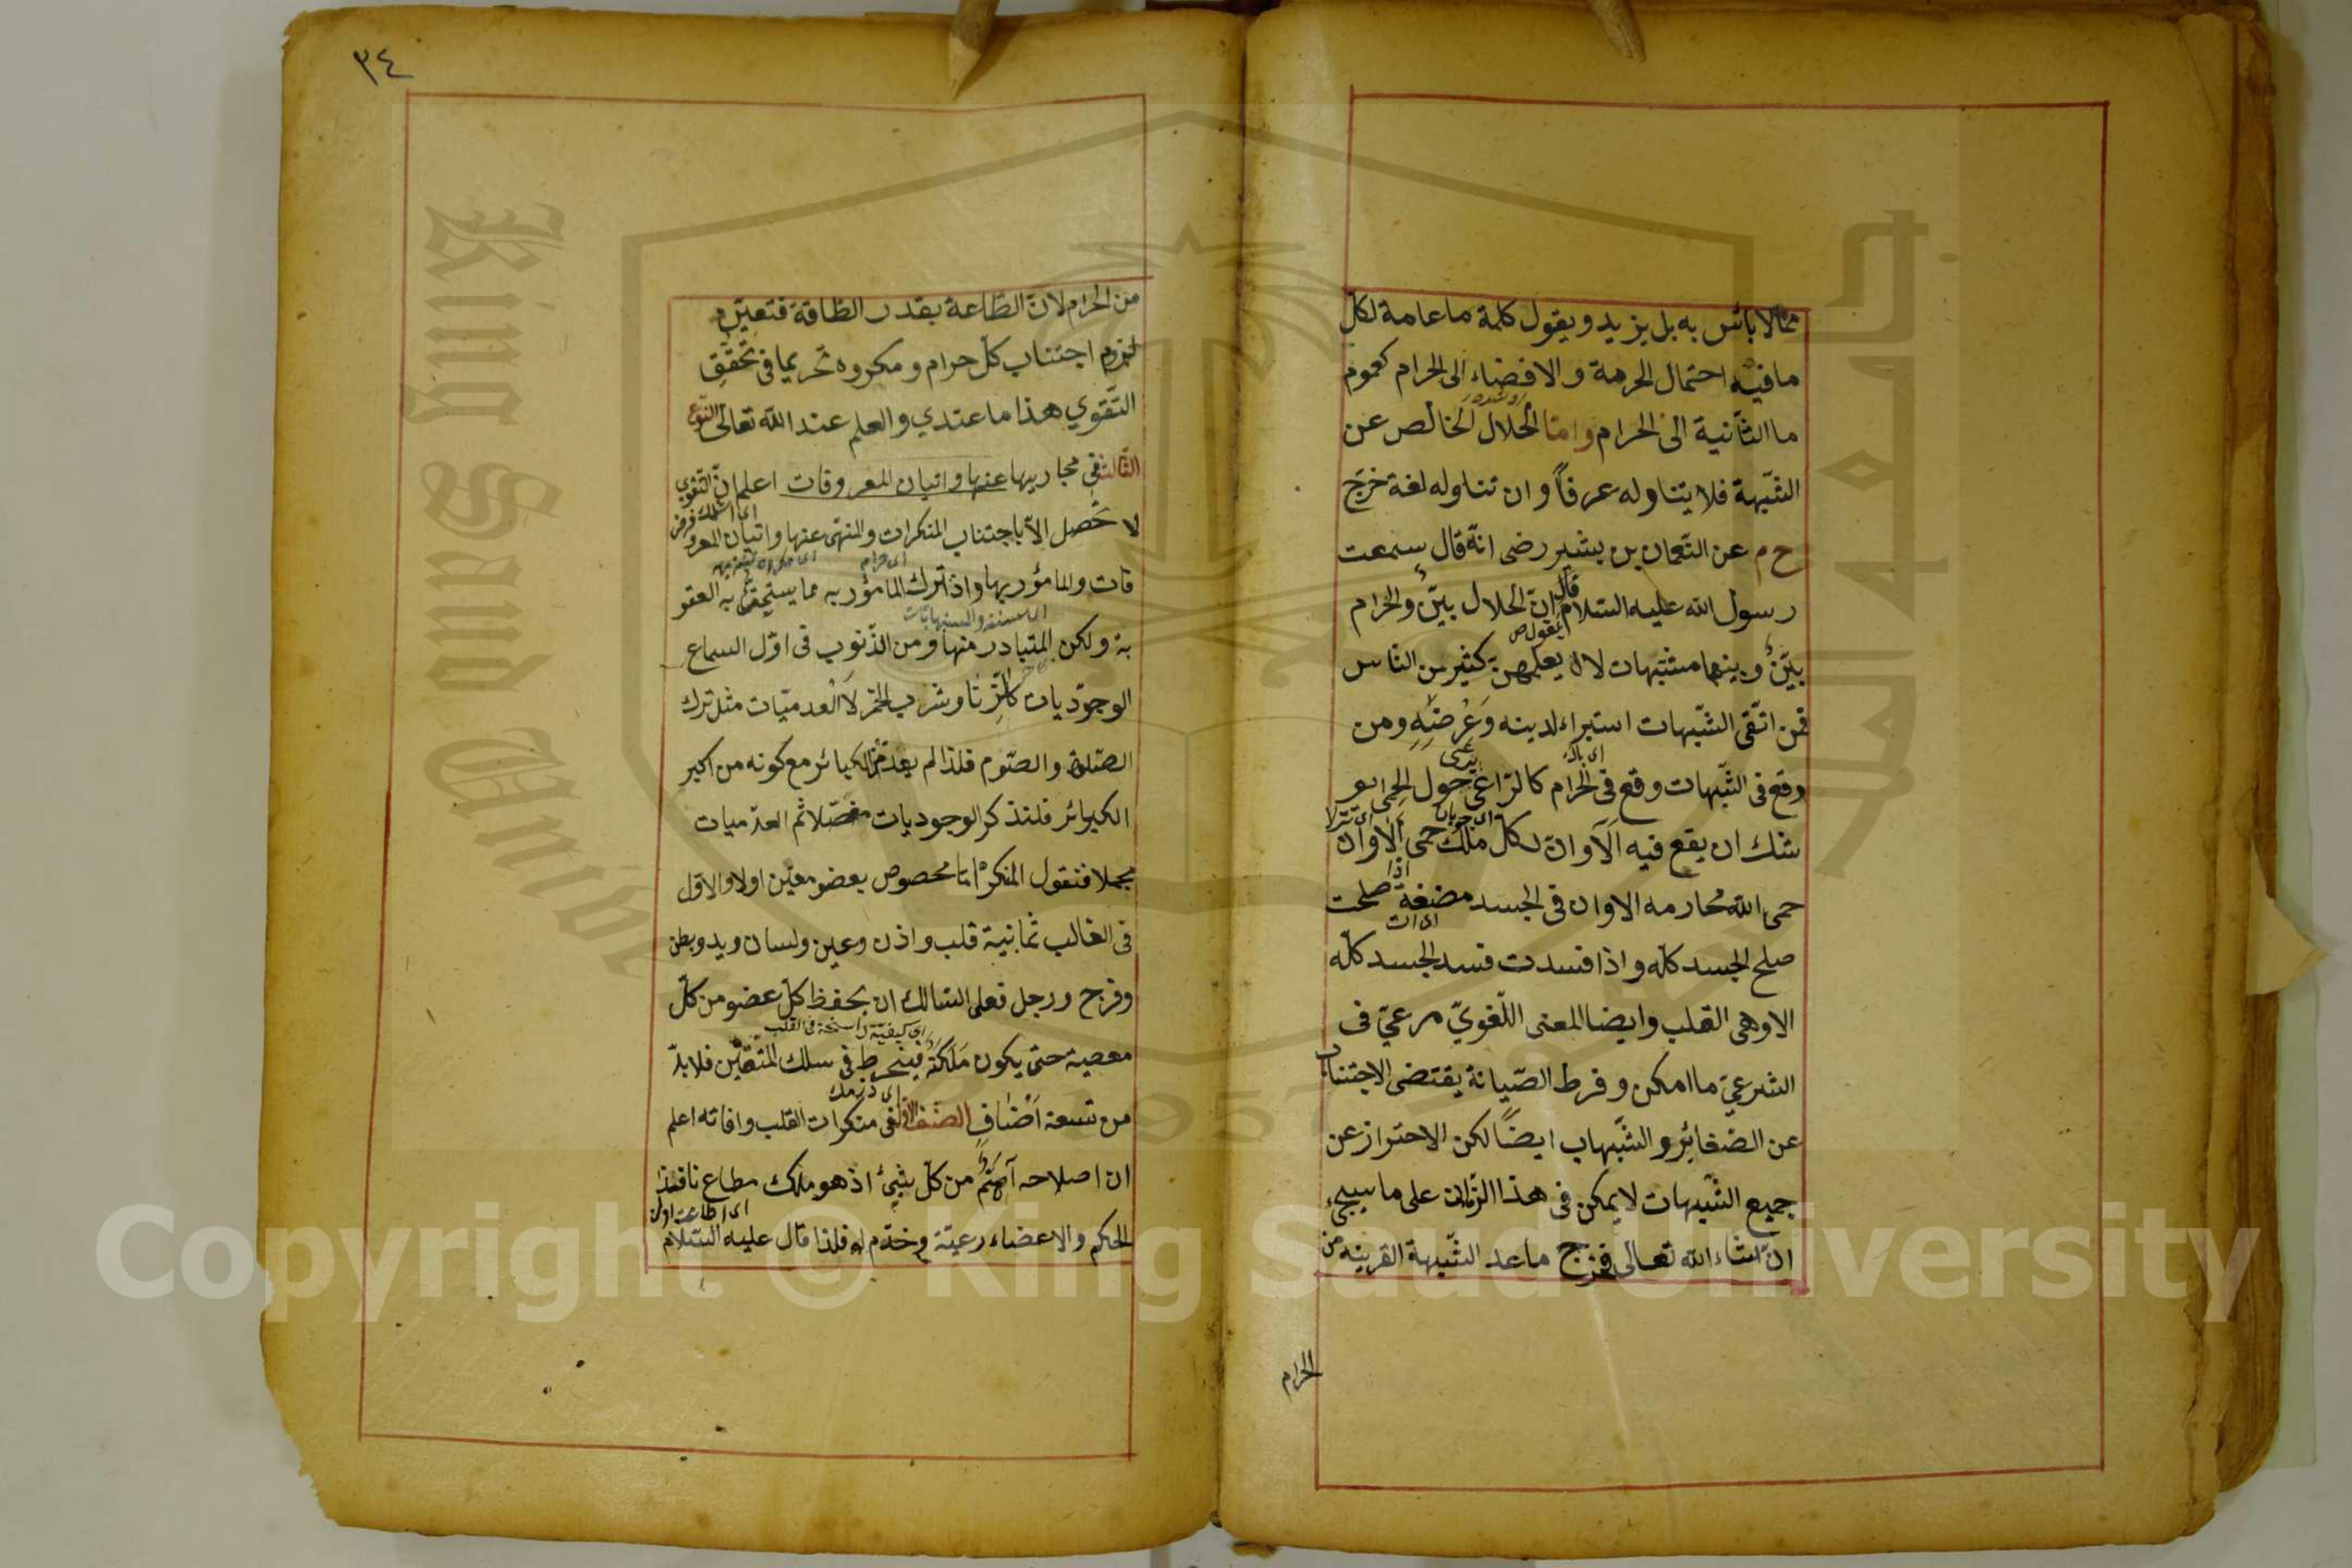 مما لا بائس به بل يزيد ويقول كلمة ما عامة لكل
ما فيه احتمال الحرمة والافضاء الى الحرام كعموم
ما الثانية الى الحرام واما الحلال الخالص عن
الشبهة فلا يتناوله عرفاً وان تناوله لغة خرج
خ م عن النعمان بن بشير رضى انه قال سمعت
رسول الله عليه السلام قال ان الحلال بين والحرام
يقول ص
بين وبينهما مشتبهات لا يعلمهن كثير من الناس
فمن اتقى الشبهات استبراء لدينه وعرضه ومن
وقع فى الشبهات وقع فى الحرام كالراعى حول الحمى يو
يرعى
شك ان يقع فيه الا وان لكل ملك حمى الا وان
اذا
حمى الله محارمه الا وان فى الجسد مضغة صلحت
صلح الجسد كله واذا فسدت فسد الجسد كله
الا وهى القلب وايضا المعنى اللغوي مرعي فى
الشرعي ما امكن وفرط الصيانة يقتضى الاجتناب
عن الصغائر والشبهاب ايضاً لكن الاحتراز عن
جميع الشبهات لا يمكن فى هذا الزمان على ما سيجيء
ان شاء الله تعالى فخرج ما عد الشبهة القريبه من
الحرام
٣٤
من الحرام لان الطاعة بقدر الطاقة فتعين
لزوم اجتناب كل حرام ومكروه تحريما فى تحقق
التقوي هذا ما عندي والعلم عند الله تعالى النوع
الثالث فى مجاريها عنها واتيان المعروقات اعلم ان التقوى
لا تحصل الا باجتناب المنكرات والمنهى عنها واتيان المعرو
اى حرام
قات والمامؤر بها واذ ترك المامؤر به مما يستحق به العقو
به ولكن المتبادر منها ومن الذنوب فى اول السماع
الوجوديات كالزنا وشرب الخمر لا العدميات مثل ترك
الصلوة والصوم فلذا لم يعد من الكبائر مع كونه من اكبر
الكبرائر فلنذكر الوجوديات مفصلا ثم العدميات
مجملا فنقول المنكر اما مخصوص بعضو معين اولا والاول
فى الغالب ثمانية قلب واذن وعين ولسان ويد وبطن
وفرج ورجل فعلى السالك ان يحفظ كل عضو من كل
اى كيفية راسخة فى القلب
معصية حتى يكون ملكة فينخرط فى سلك المتقين فلا بد
من تسعة اصناف الصنف الاول فى منكرات القلب وافاته اعلم
ان اصلاحه اهم من كل شيئ اذ هو ملك مطاع نافذ
الحكم والاعضاء رعية وخدم له فلذا قال عليه السلام
Copyright © King Saud University
King Saud University
1957